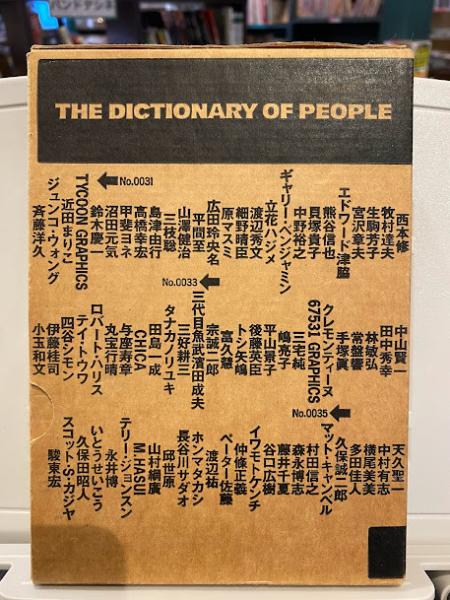 THE DICTIONARY OF PEOPLE
西本修
牧村達夫
生駒芳子
宮沢章夫
エドワード津脇
熊谷信也
貝塚貴子
中野裕之
ギャリー・ベンジャミン
立花ハジメ
渡辺秀文
細野晴臣
原マスミ
広田玲央名
平間至
山澤健治
三枝聡
島津由行
高橋幸宏
甲斐ヨネ
沼田元気
鈴木慶一
TYCOON GRAPHICS
No.0031
近田まりこ
ジュンコ・ウォング
斉藤洋久
中山賢一
田中秀幸
林敏弘
常盤響
手塚眞
クレモンティーヌ
67531 GRAPHICS
三宅純
嶋亮子
平山景子
後藤英臣
トシ矢嶋
富久慧
宗誠二郎
三代目魚武濱田成夫
No.0033
三好耕三
タナカノリユキ
田島一成
CHICA
与座寿章
丸宝行晴
ロバート・ハリス
テイ・トウワ
四谷シモン
伊藤桂司
小玉和文
天久聖一
中村有志
横尾美美
多田佳人
久保誠二郎
マット・キャンベル
No.0035
村田信之
森永博志
藤井千夏
谷口広樹
イワモトケンチ
仲條正義
ペーター佐藤
渡辺祐
ホンマタカシ
長谷川サダオ
邱世原
山村綱廣
M.HASUI
テリー・ジョンスン
永井博
いとうせいこう
久保田昭人
スコット・S・カジヤ
駿東宏